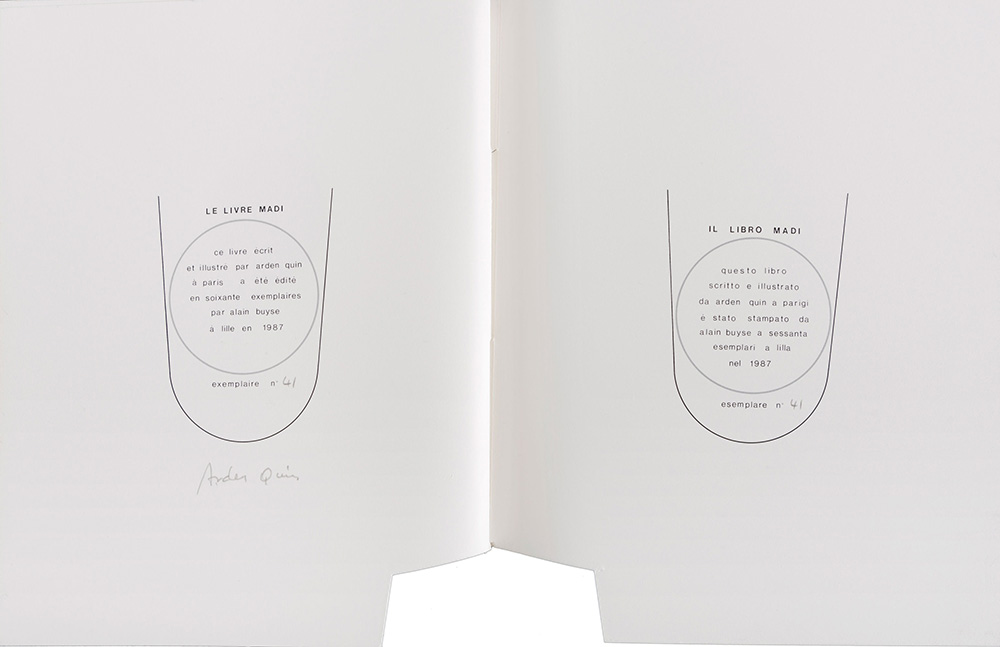 LE LIVRE MADI
ce livre écrit
et illustré par arden quin
à paris a été édité
en soixante exemplaires
par alain buyse
à lille en 1987
exemplaire n° 41
Arden Quin
IL LIBRO MADI
questo libro
scritto e illustrato
da arden quin a parigi
è stato stampato da
alain buyse a sessanta
esemplari a lilla
nel 1987
esemplare n° 41